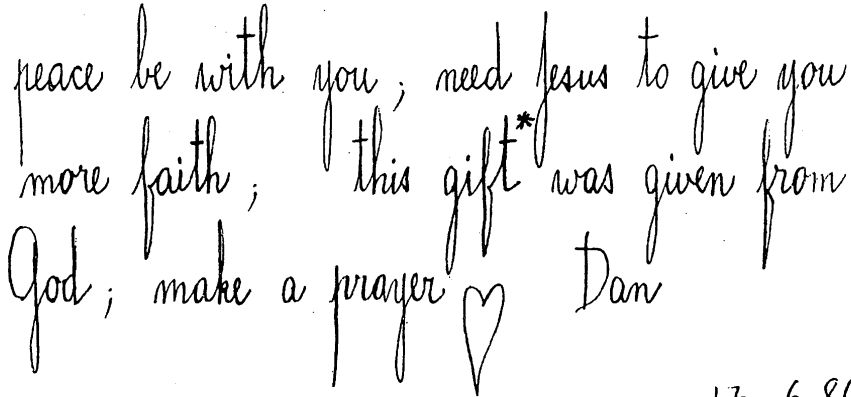 peace be with you ; need Jesus to give you
more faith ; this gift* was given from
God ; make a prayer ♡ Dan